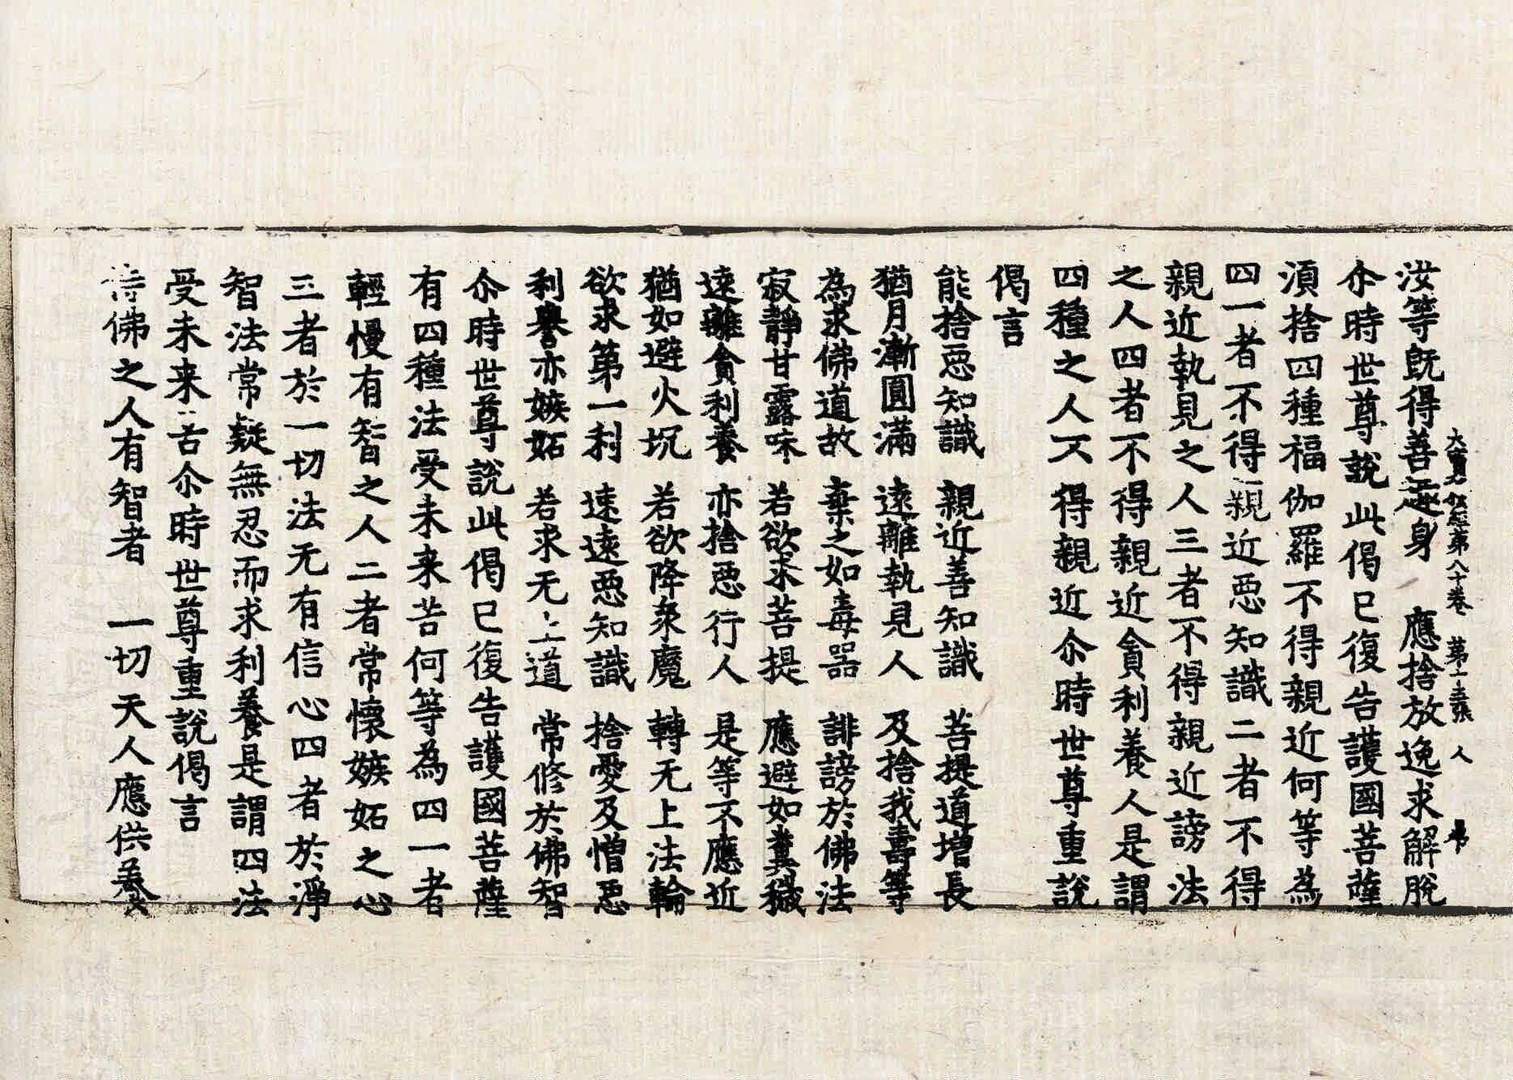 大寶積經第八十卷　第十三張　人
汝等旣得善趣身　應捨放逸求解脫
尒時世尊說此偈已復告護國菩薩
湏捨四種福伽羅不得親近何等為
四一者不得親近惡知識二者不得
親近執見之人三者不得親近謗法
之人四者不得親近貪利養人是謂
四種之人不得親近尒時世尊重說
偈言
能捨惡知識　親近善知識　菩提道增長
猶月漸圓滿　遠離執見人　及捨我壽等
為求佛道故　棄之如毒器　誹謗於佛法
寂靜甘露味　若欲求菩提　應避如糞穢
遠離貪利養　亦捨惡行人　是等不應近
猶如避火坑　若欲降衆魔　轉无上法輪
欲求第一利　速遠惡知識　捨愛及憎惡
利譽亦嫉妬　若求无上道　常修於佛智
尒時世尊說此偈已復告護國菩薩
有四種法受未来苦何等為四一者
輕慢有智之人二者常懷嫉妬之心
三者於一切法无有信心四者於淨
智法常疑無忍而求利養是謂四法
受未来苦尒時世尊重說偈言
恃佛之人有智者　一切天人應供養